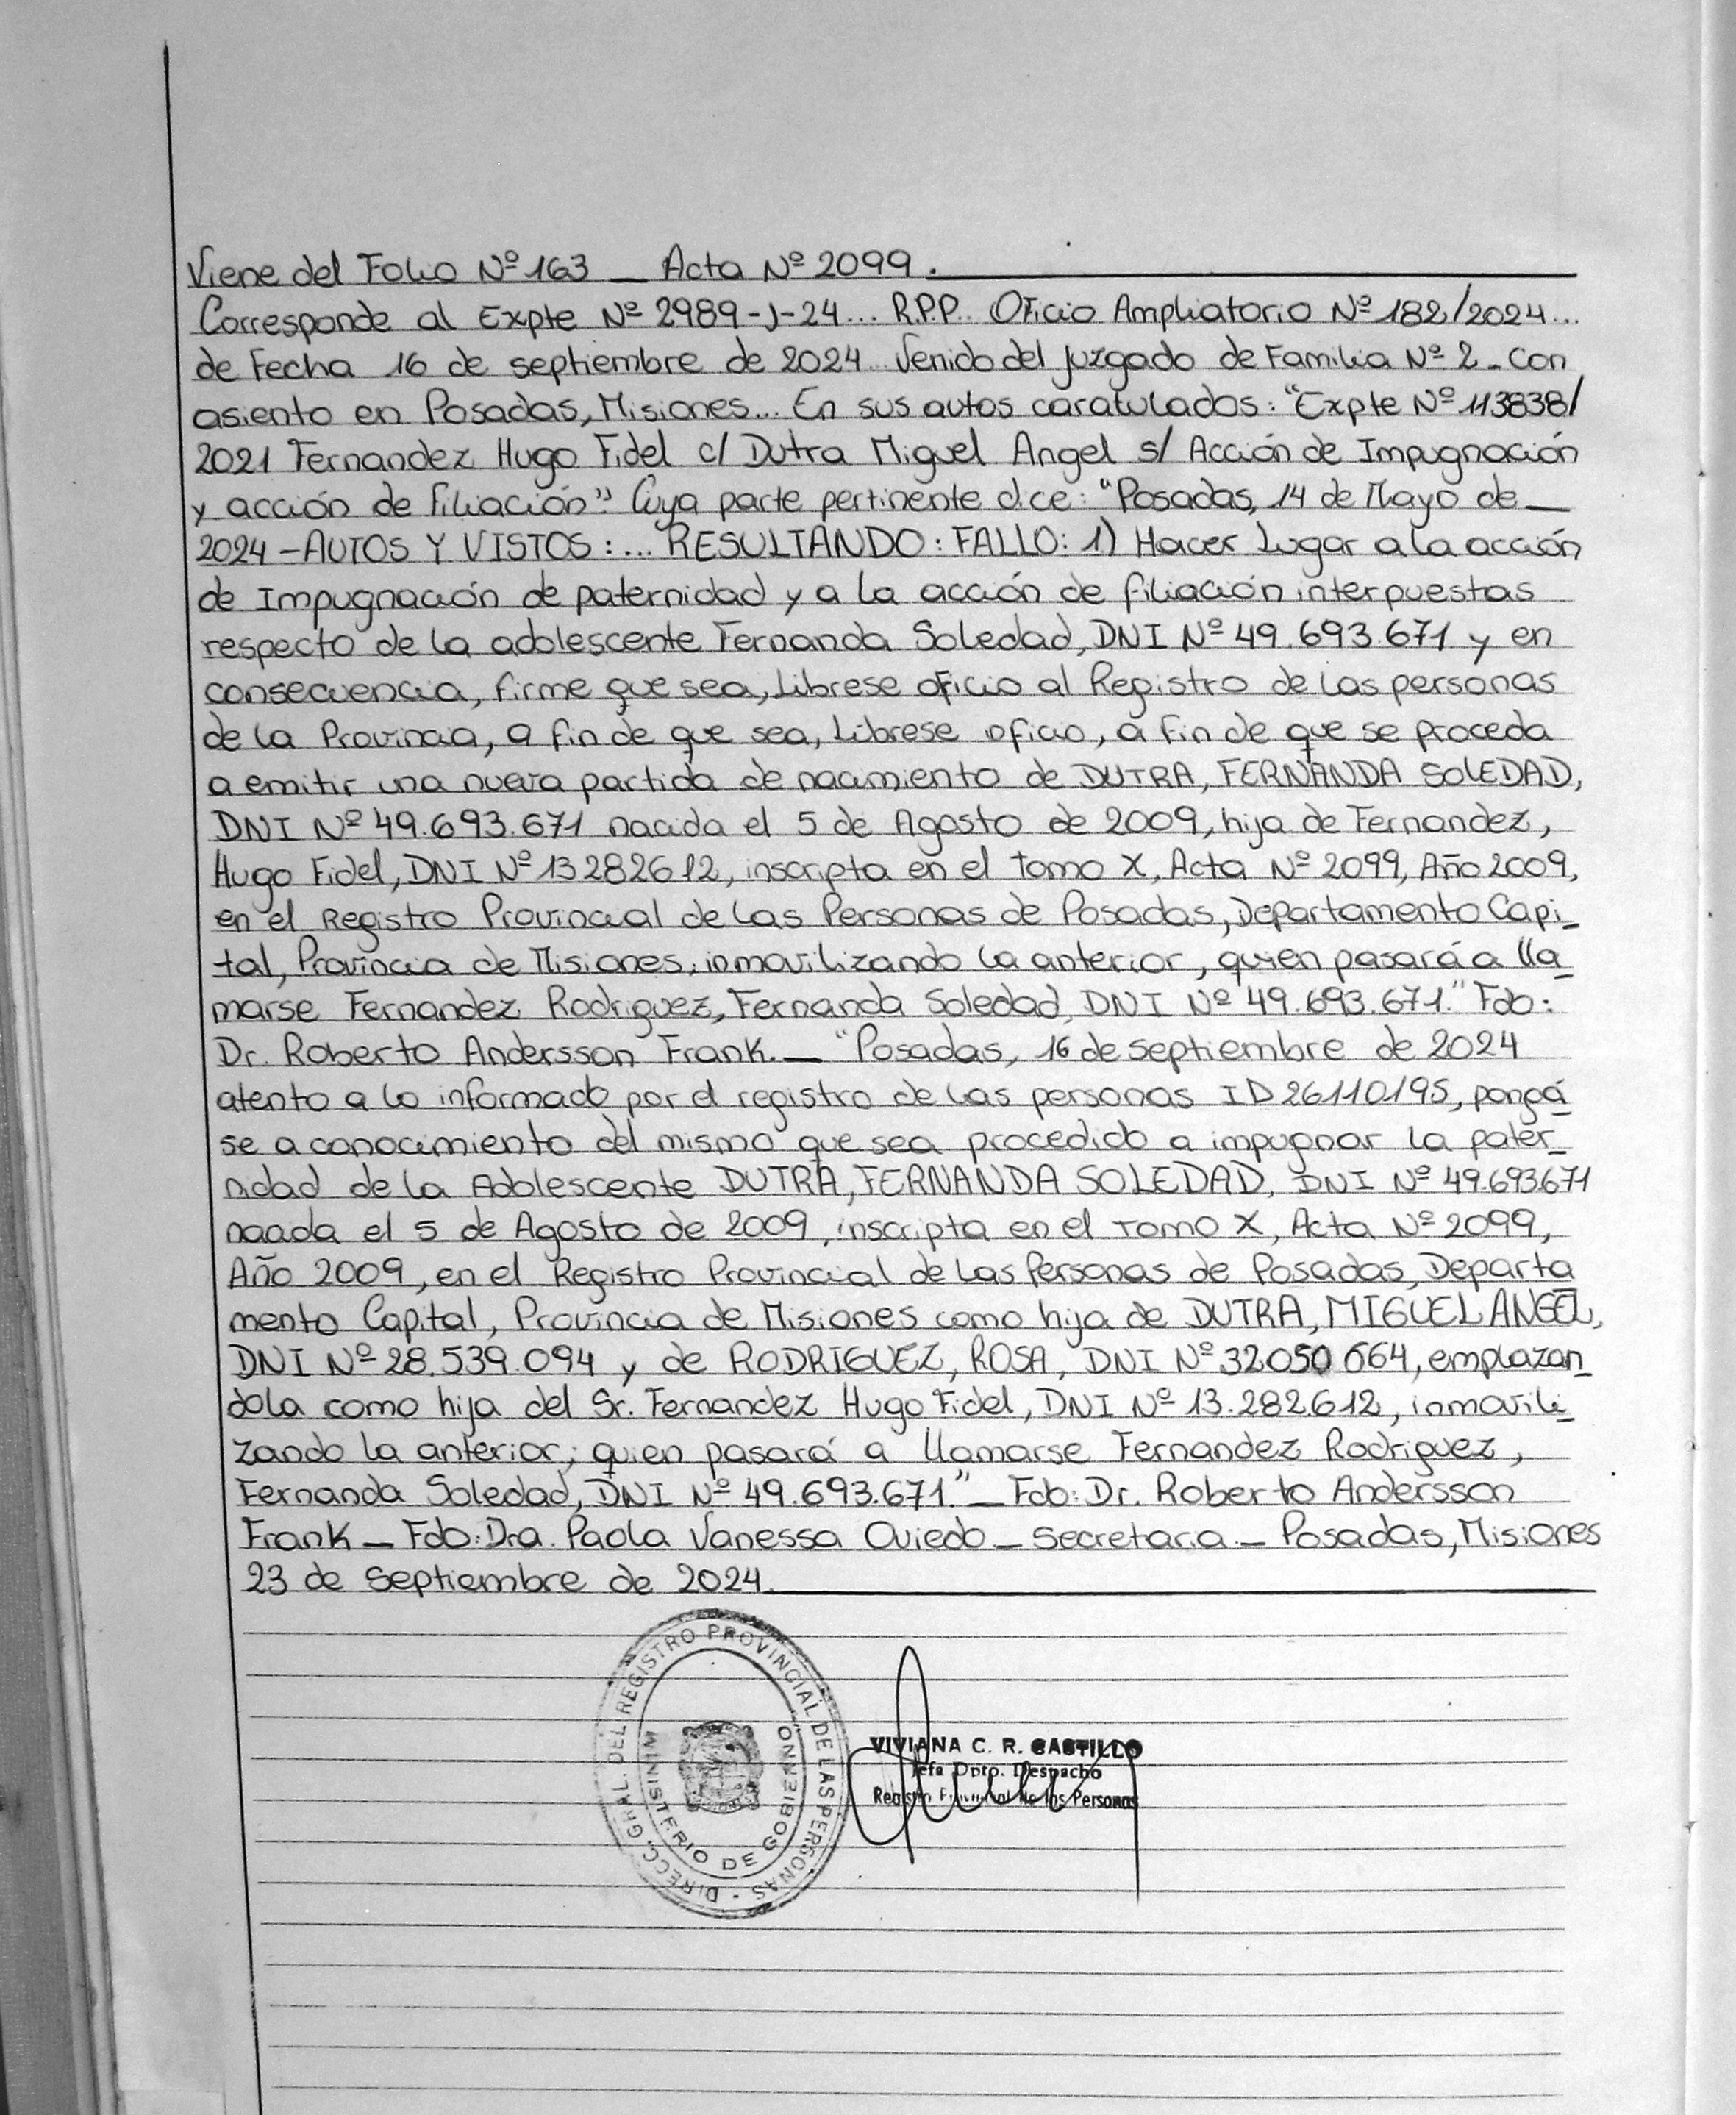 Viene del Folio Nº 163 _ Acta Nº 2099.
Corresponde al Expte Nº 2989-J-24... R.P.P. Oficio Ampliatorio Nº 182/2024...
de Fecha 16 de septiembre de 2024. Venido del Juzgado de Familia Nº 2 - con
asiento en Posadas, Misiones... En sus autos caratulados: "Expte Nº 113838/
2021 Fernandez Hugo Fidel c/ Dutra Miguel Angel s/ Acción de Impugnación
y acción de filiación". Cuya parte pertinente dice: "Posadas, 14 de Mayo de _
2024 - AUTOS Y VISTOS: ... RESULTANDO: FALLO: 1) Hacer Lugar a la acción
de Impugnación de paternidad y a la acción de filiación interpuestas
respecto de la adolescente Fernanda Soledad, DNI Nº 49.693.671 y en
consecuencia, firme que sea, Librese oficio al Registro de las personas
de la Provincia, a fin de que sea, Librese oficio, a fin de que se proceda
a emitir una nueva partida de nacimiento de DUTRA, FERNANDA SOLEDAD,
DNI Nº 49.693.671 nacida el 5 de Agosto de 2009, hija de Fernandez,
Hugo Fidel, DNI Nº 13282612, inscripta en el Tomo X, Acta Nº 2099, Año 2009,
en el Registro Provincial de Las Personas de Posadas, Departamento Capi_
tal, Provincia de Misiones, inmovilizando la anterior, quien pasará a lla_
marse Fernandez Rodriguez, Fernanda Soledad, DNI Nº 49.693.671." Fdo:
Dr. Roberto Andersson Frank. _ "Posadas, 16 de septiembre de 2024
atento a lo informado por el registro de las personas ID 26110195, pongá_
se a conocimiento del mismo que sea procedido a impugnar la pater_
nidad de la Adolescente DUTRA, FERNANDA SOLEDAD, DNI Nº 49.693671
nacida el 5 de Agosto de 2009, inscripta en el Tomo X, Acta Nº 2099,
Año 2009, en el Registro Provincial de Las Personas de Posadas, Departa
mento Capital, Provincia de Misiones como hija de DUTRA, MIGUEL ANGEL,
DNI Nº 28.539.094 y de RODRIGUEZ, ROSA, DNI Nº 32050664, emplazan_
dola como hija del Sr. Fernandez Hugo Fidel, DNI Nº 13.282.612, inmovili_
zando la anterior; quien pasará a llamarse Fernandez Rodriguez,
Fernanda Soledad, DNI Nº 49.693.671." _ Fdo: Dr. Roberto Andersson
Frank _ Fdo: Dra. Paola Vanessa Oviedo _ Secretaria _ Posadas, Misiones
23 de Septiembre de 2024.
DIRECC. GRAL. DEL REGISTRO PROVINCIAL DE LAS PERSONAS
MINISTERIO DE GOBIERNO
VIVIANA C. R. CASTILLO
Jefa Dpto. Despacho
Registro Provincial de las Personas